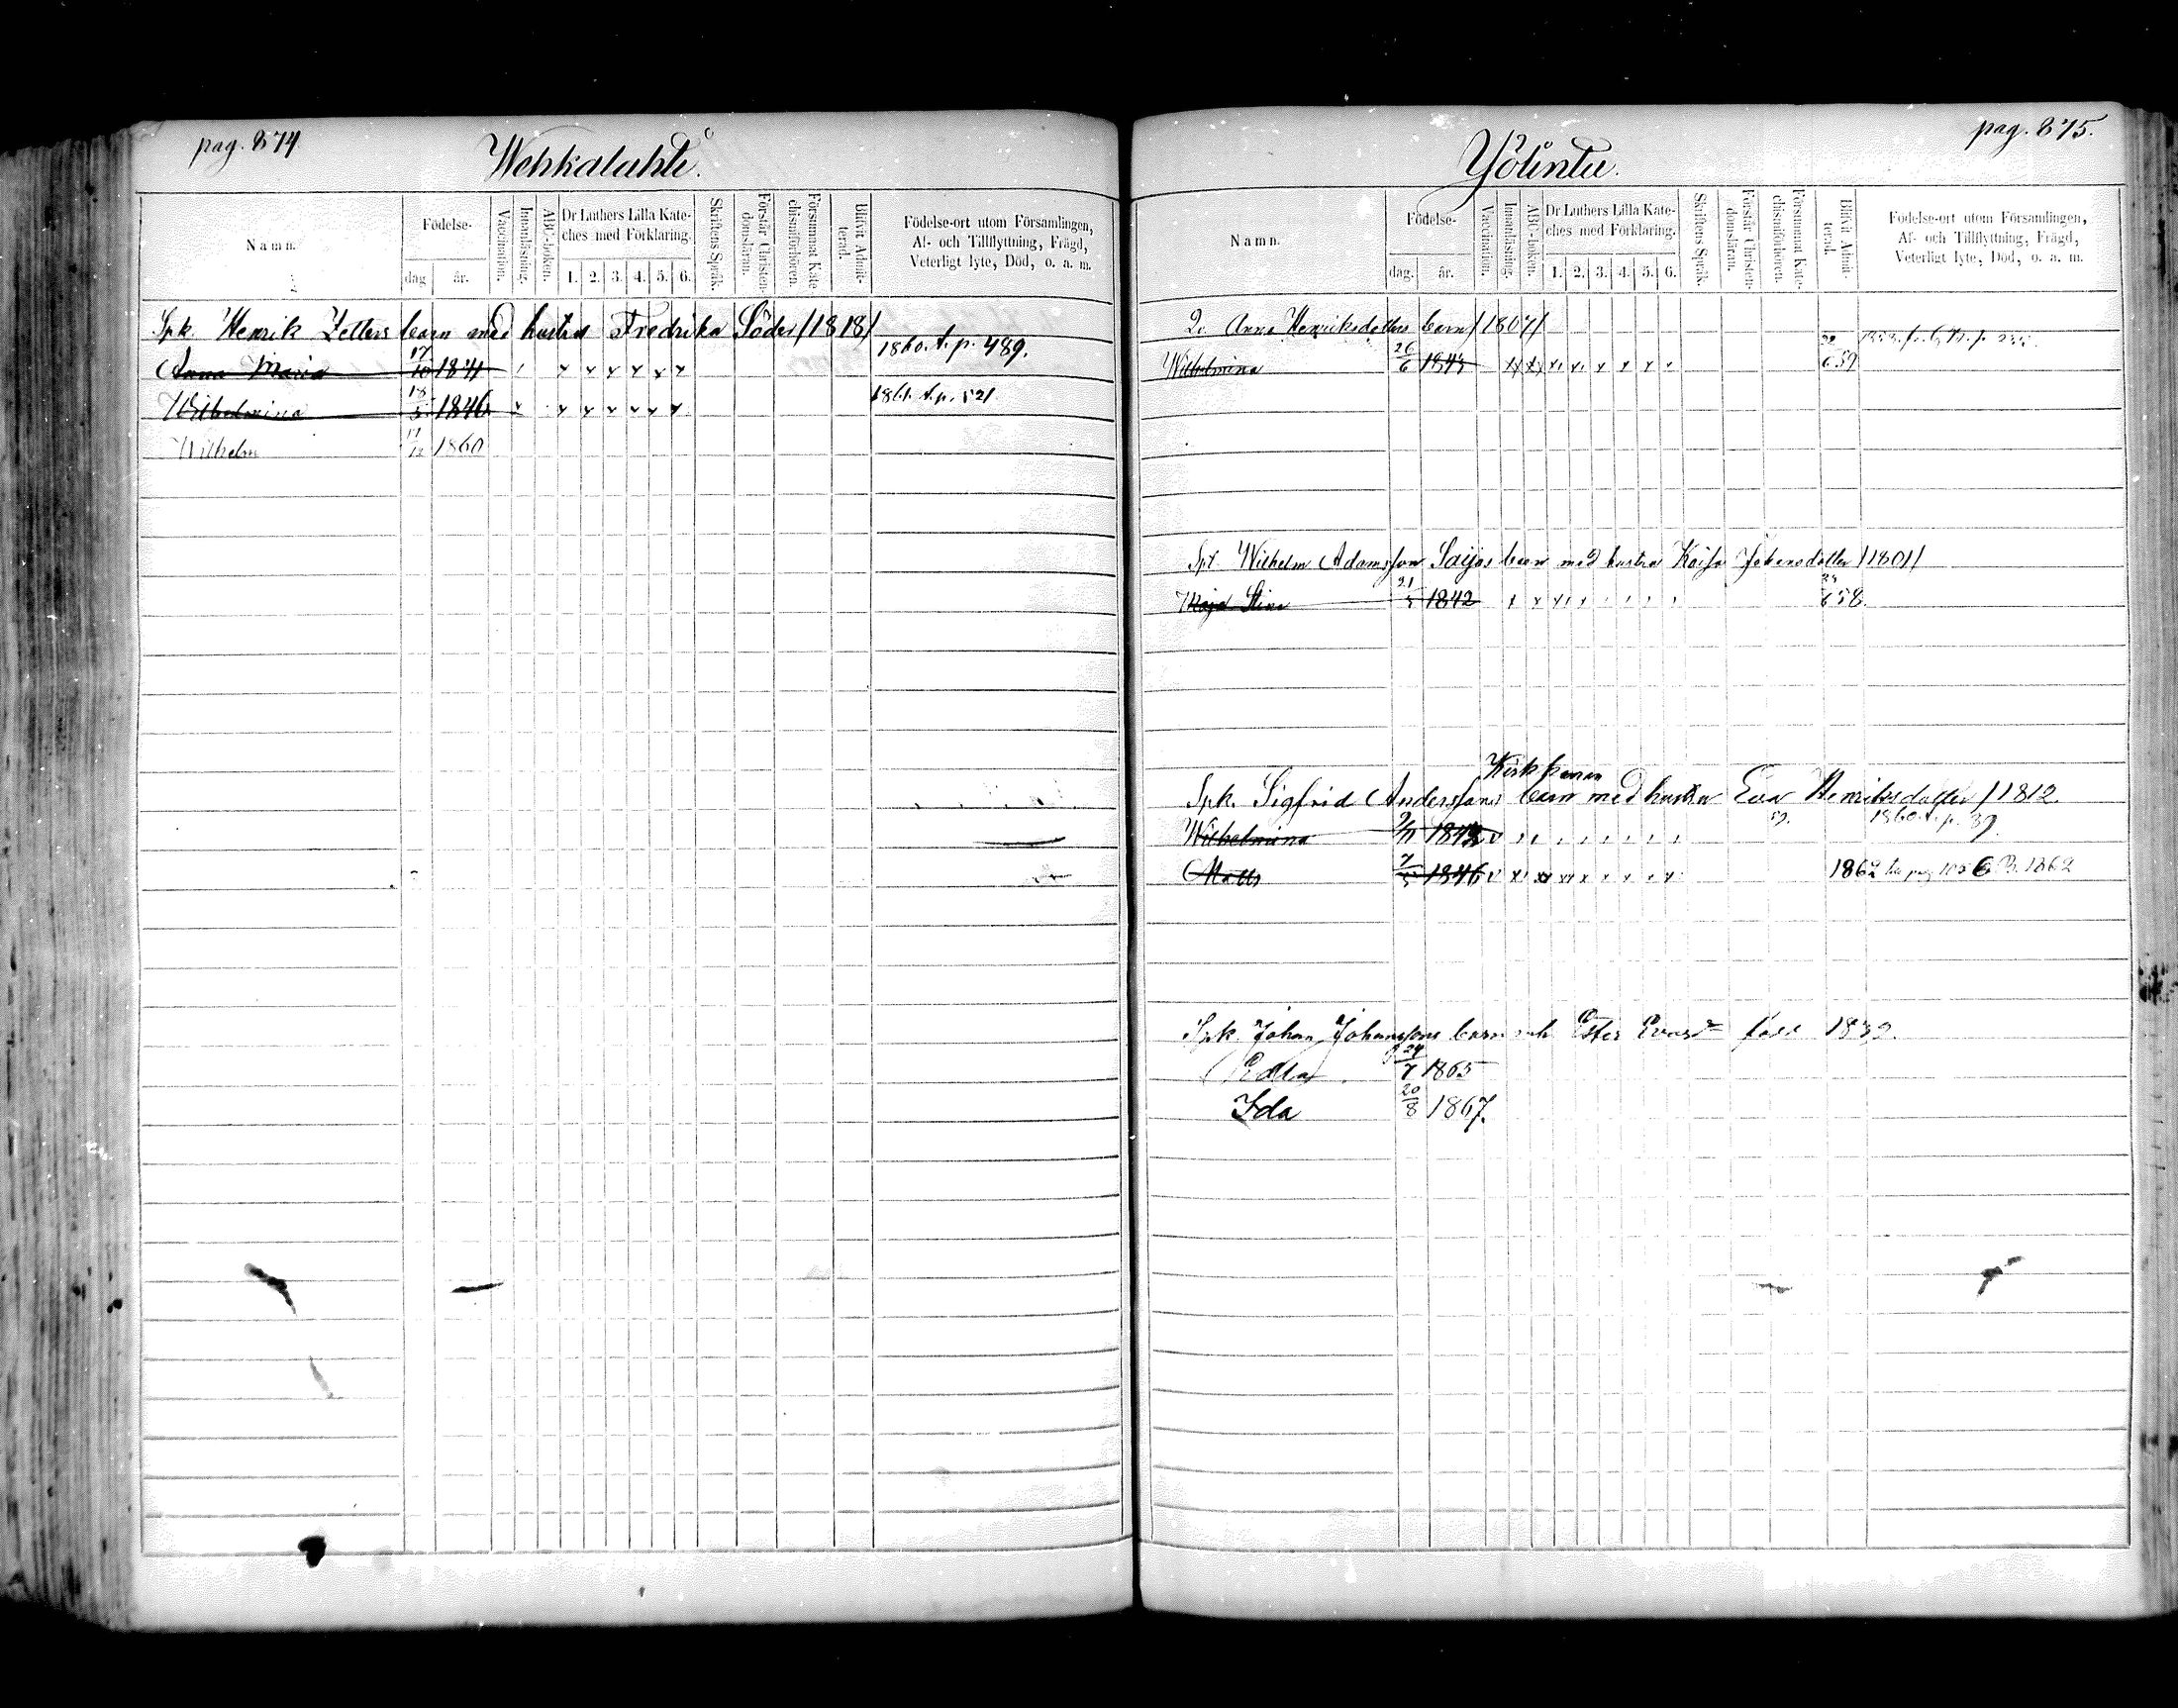 pag. 874
Wehkalahti.
Namn.
Födelse-
dag
år.
Vaccination.
Innanläsning.
ABC-boken.
Dr Luthers Lilla Kate-
ches med Förklaring.
1. 2. 3. 4. 5. 6.
Skriftens Språk.
Förstår Christen-
domsläran.
Försummat Kate-
chismiförhören.
Blifvit Admit-
terad.
Födelse-ort utom Församlingen,
Af- och Tillflyttning, Frägd,
Veterligt lyte, Död, o. a. m.
Spk. Henrik Zetters barn med hustru Fredrika Söder /1818/
Anna Maria 17/10 1841 1860. t. p. 489.
Wilhelmina 18/5 1846 1861. t. p. 521
Wilhelm 17/12 1860
pag. 875.
Yölintu.
Namn.
Födelse-
dag.
år.
Vaccination.
Innanläsning.
ABC-boken.
Dr Luthers Lilla Kate-
ches med Förklaring.
1. 2. 3. 4. 5. 6.
Skriftens Språk.
Förstår Christen-
domsläran.
Försummat Kate-
chismiförhören.
Blifvit Admit-
terad.
Födelse-ort utom Församlingen,
Af- och Tillflyttning, Frägd,
Veterligt lyte, Död, o. a. m.
Anna Henriksdotters barn /1807/
Wilhelmina 26/6 1843 6 59
Wilhelm Adamsson Saijas barn med hustru Kaisa Johansdotter /1801/
Maja Stina 21/5 1842 6 58.
Kirkkanen
Spk. Sigfrid Anderssons barn med hustru Eva Henriksdotter /1812.
Wilhelmina 9/11 1843 59. 1860. t. p. 39.
Matts 7/5 1846 1862 1862
Spk. Johan Johanssons barn Ester 1832.
Edla 24/7 1865
Ida 20/8 1867.